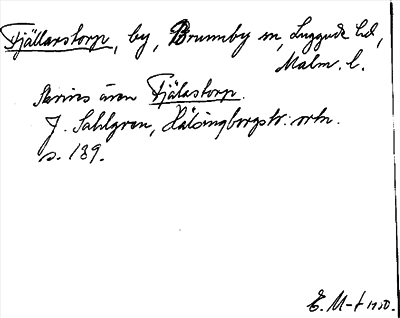 Fjällarstorp, by, Brunnby sn, Luggude hd,
Malm. l.
Skrives även Fjälastorp.
J. Sahlgren, Hälsingborgstr: ortn.
s. 139.
E. M-t 1950.